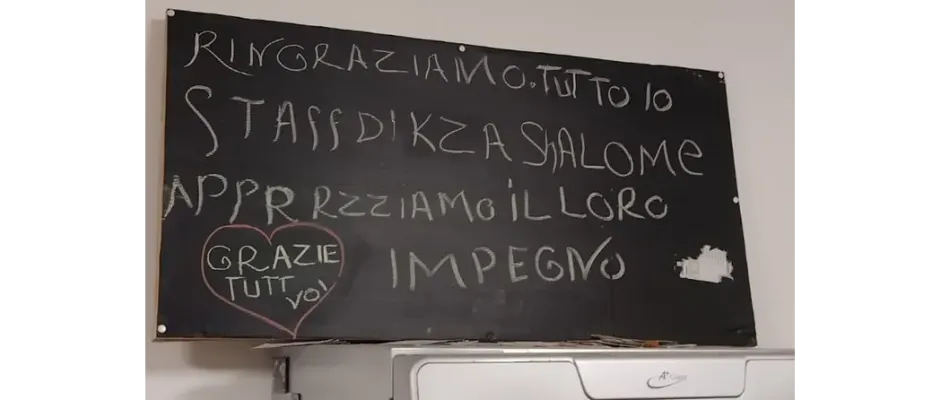 RINGRAZIAMO. TUTTO lO
STAff DI KZA ShALOMe
APPR RZZIAMO iL LORO
IMPEGNO
GRAZIE
TUTT
VOI
A+